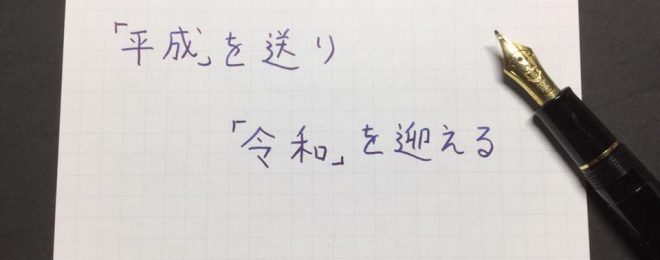 「平成」を送り
「令和」を迎える